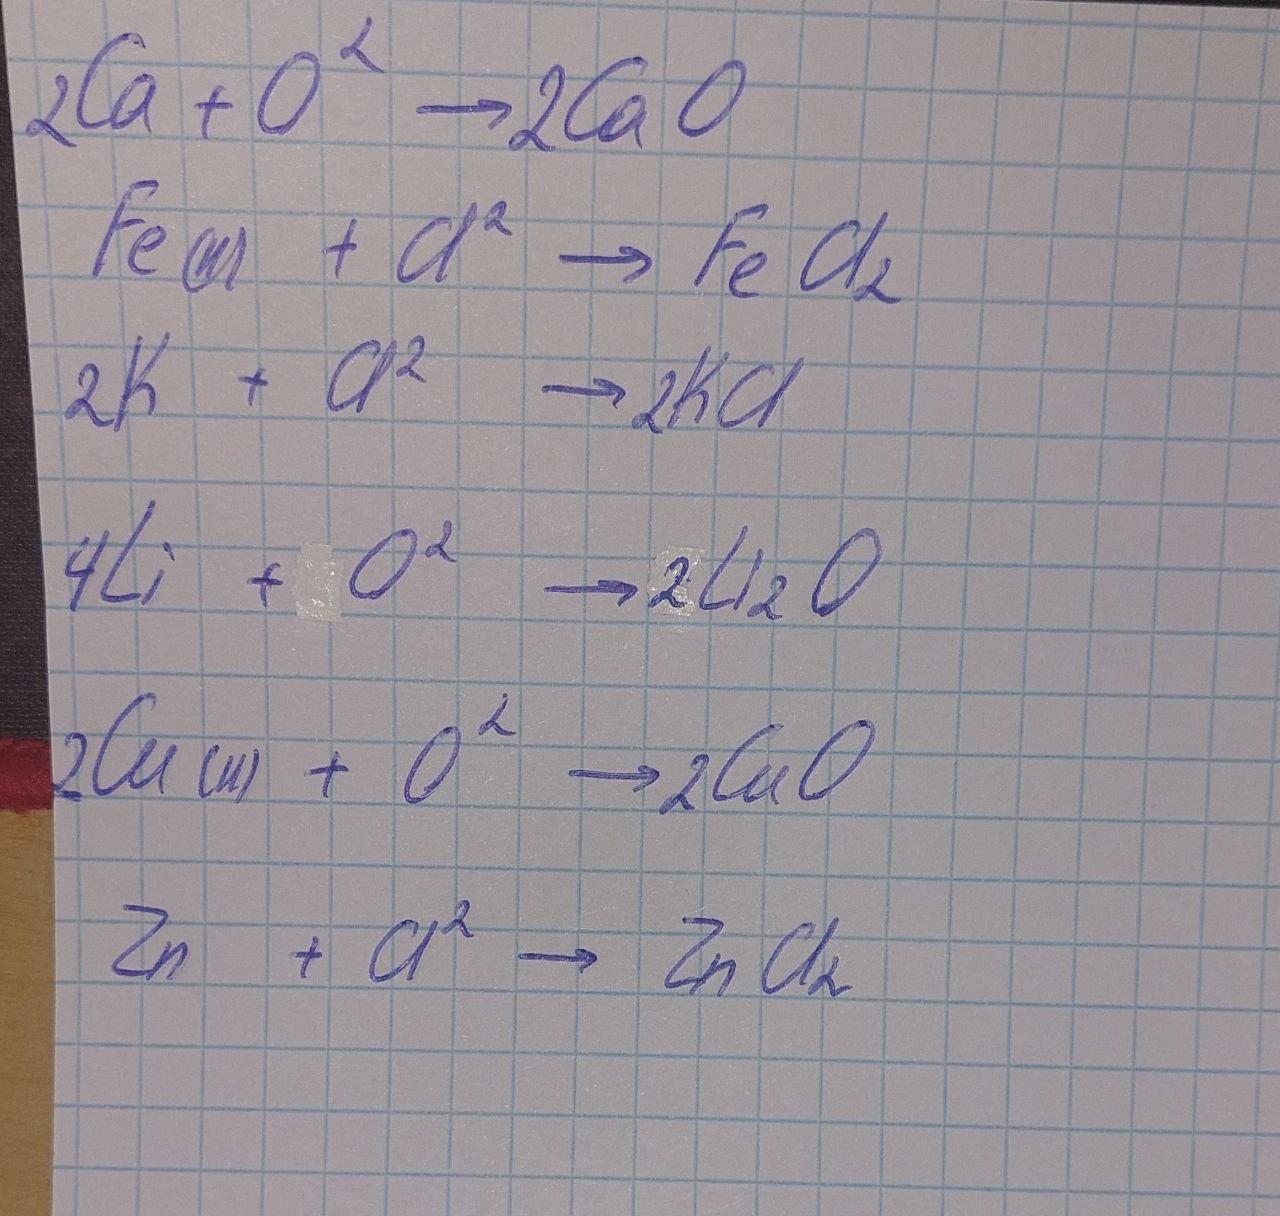 2Ca + O² → 2CaO
Fe(II) + Cl² → FeCl₂
2K + Cl² → 2KCl
4Li + O² → 2Li₂O
2Cu(II) + O² → 2CuO
Zn + Cl² → ZnCl₂